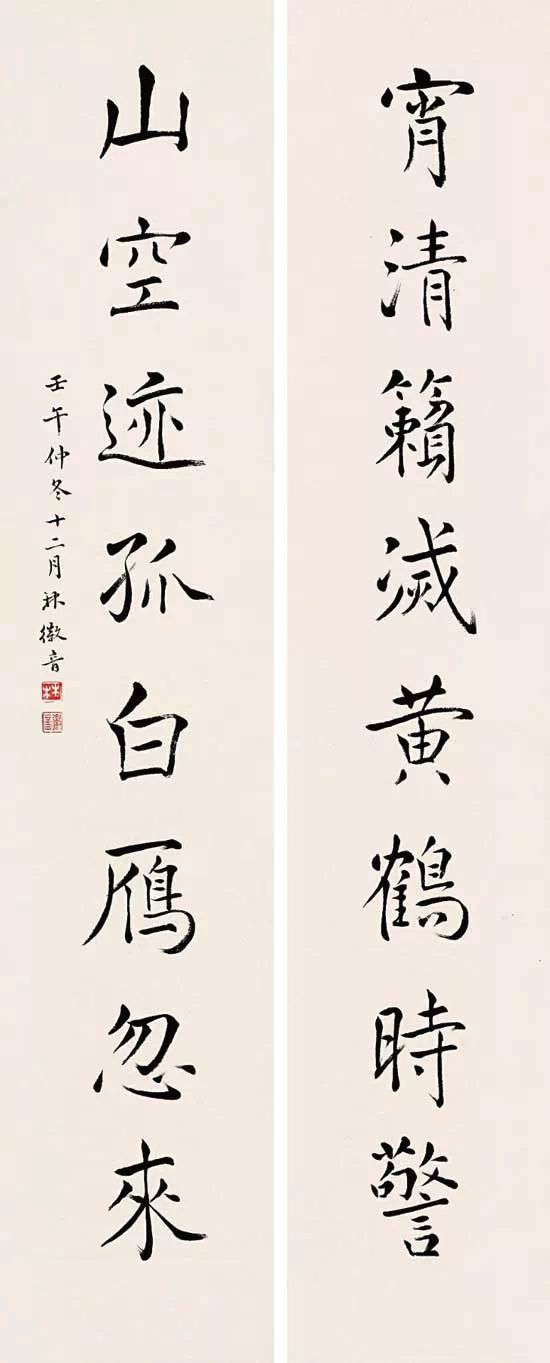 宵清籟滅黄鶴時警
山空迹孤白鴈忽來
壬午仲冬十二月林徽音
林
徽音